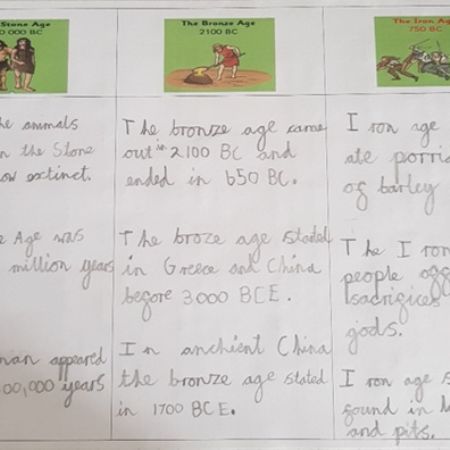 Stone Age
The Bronze Age
The Iron Age
000 BC
2100 BC
750 BC
the animals
in the Stone
now extinct.
Age was
million years
man appeared
00,000 years
The bronze age came
out in 2100 BC and
ended in 650 BC.
The broze age stated
in Greece and China
before 3000 BCE.
In anchient China
the bronze age stated
in 1700 BCE.
Iron age
ate porri
of barley
The Iron
people
sacrifices
gods.
Iron age s
found in
and pits.